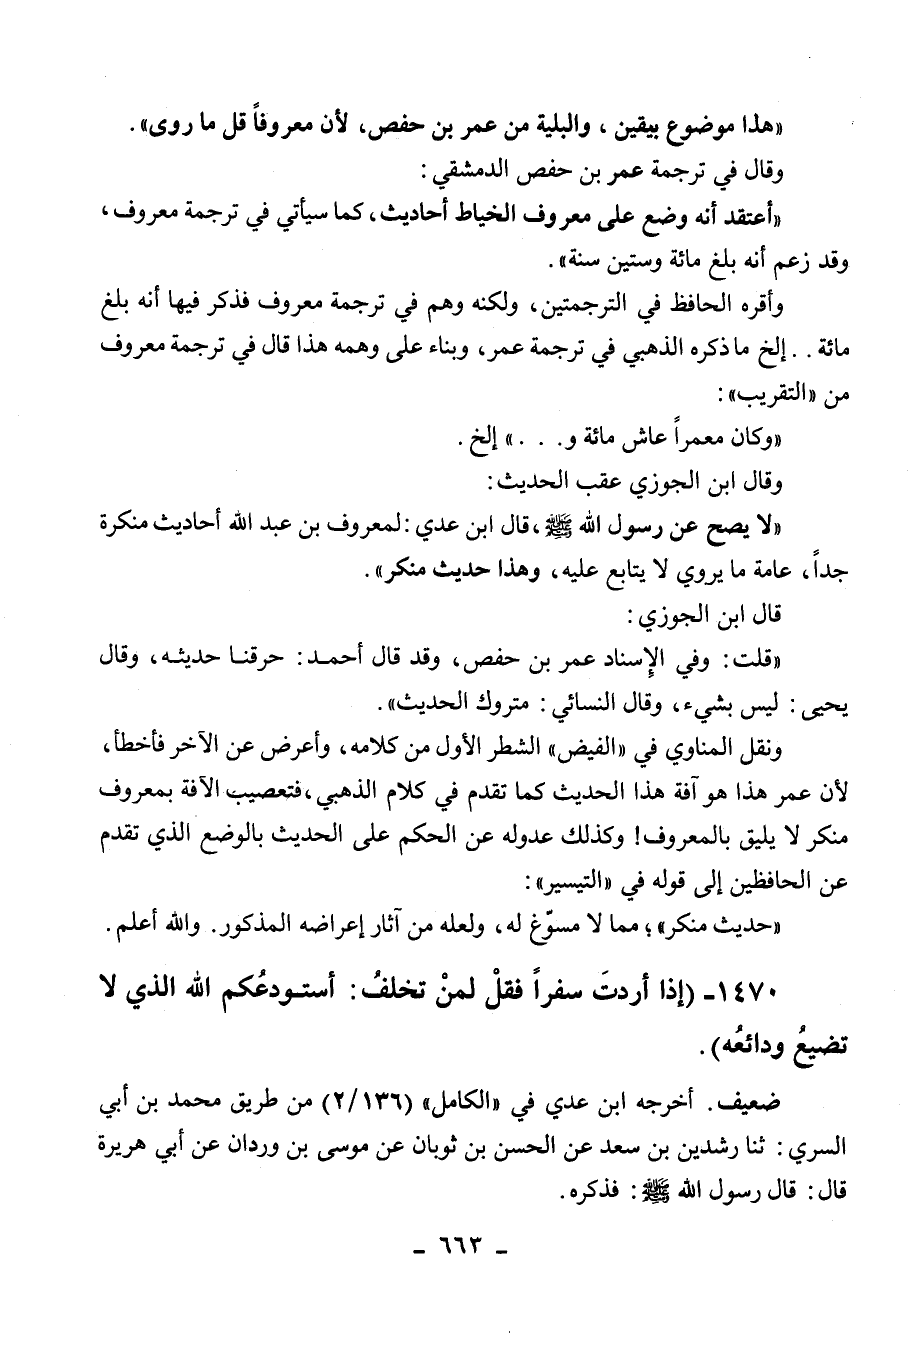 «هذا موضوع بيقين ، والبلية من عمر بن حفص، لأن معروفاً قل ما روى» .
وقال في ترجمة عمر بن حفص الدمشقي :
«أعتقد أنه وضع على معروف الخياط أحاديث، كما سيأتي في ترجمة معروف،
وقد زعم أنه بلغ مائة وستين سنة» .
وأقره الحافظ في الترجمتين، ولكنه وهم في ترجمة معروف فذكر فيها أنه بلغ
مائة . . إلخ ما ذكره الذهبي في ترجمة عمر، وبناء على وهمه هذا قال في ترجمة معروف
من «التقريب» :
«وكان معمراً عاش مائة و . . .» إلخ .
وقال ابن الجوزي عقب الحديث :
«لا يصح عن رسول الله ﷺ، قال ابن عدي : لمعروف بن عبد الله أحاديث منكرة
جداً، عامة ما يروي لا يتابع عليه، وهذا حديث منكر» .
قال ابن الجوزي :
«قلت : وفي الإسناد عمر بن حفص، وقد قال أحمد : حرقنا حديثه، وقال
يحيى : ليس بشيء، وقال النسائي : متروك الحديث» .
ونقل المناوي في «الفيض» الشطر الأول من كلامه، وأعرض عن الآخر فأخطأ،
لأن عمر هذا هو آفة هذا الحديث كما تقدم في كلام الذهبي، فتعصيب الآفة بمعروف
منكر لا يليق بالمعروف! وكذلك عدوله عن الحكم على الحديث بالوضع الذي تقدم
عن الحافظين إلى قوله في «التيسير» :
«حديث منكر» ؛ مما لا مسوّغ له، ولعله من آثار إعراضه المذكور. والله أعلم .
١٤٧٠ـ (إذا أردتَ سفراً فقلْ لمنْ تخلفُ : أستودعُكم الله الذي لا
تضيعُ ودائعُه) .
ضعيف . أخرجه ابن عدي في «الكامل» (٢/١٣٦) من طريق محمد بن أبي
السري : ثنا رشدين بن سعد عن الحسن بن ثوبان عن موسى بن وردان عن أبي هريرة
قال : قال رسول الله ﷺ : فذكره .
ـ ٦٦٣ ـ